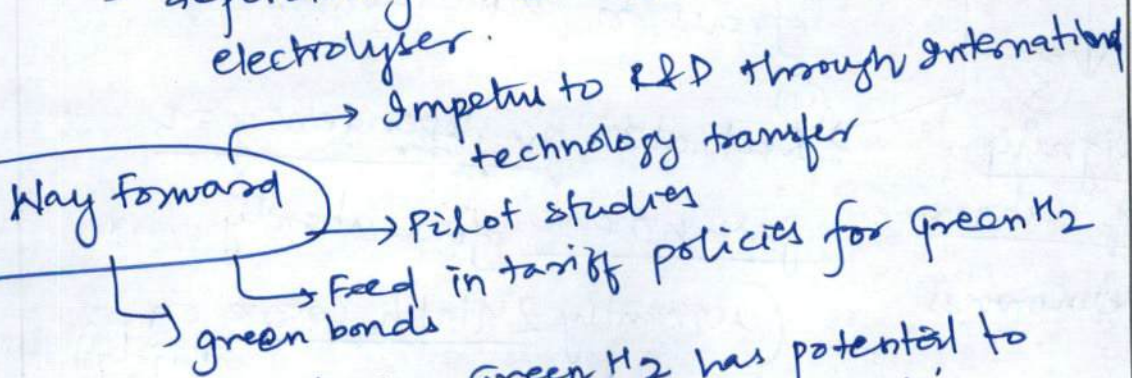 electrolyser.
→ Impetus to R&D through International
technology transfer
Way forward
→ Pilot studies
→ Feed in tariff policies for Green H2
→ green bonds
Green H2 has potential to